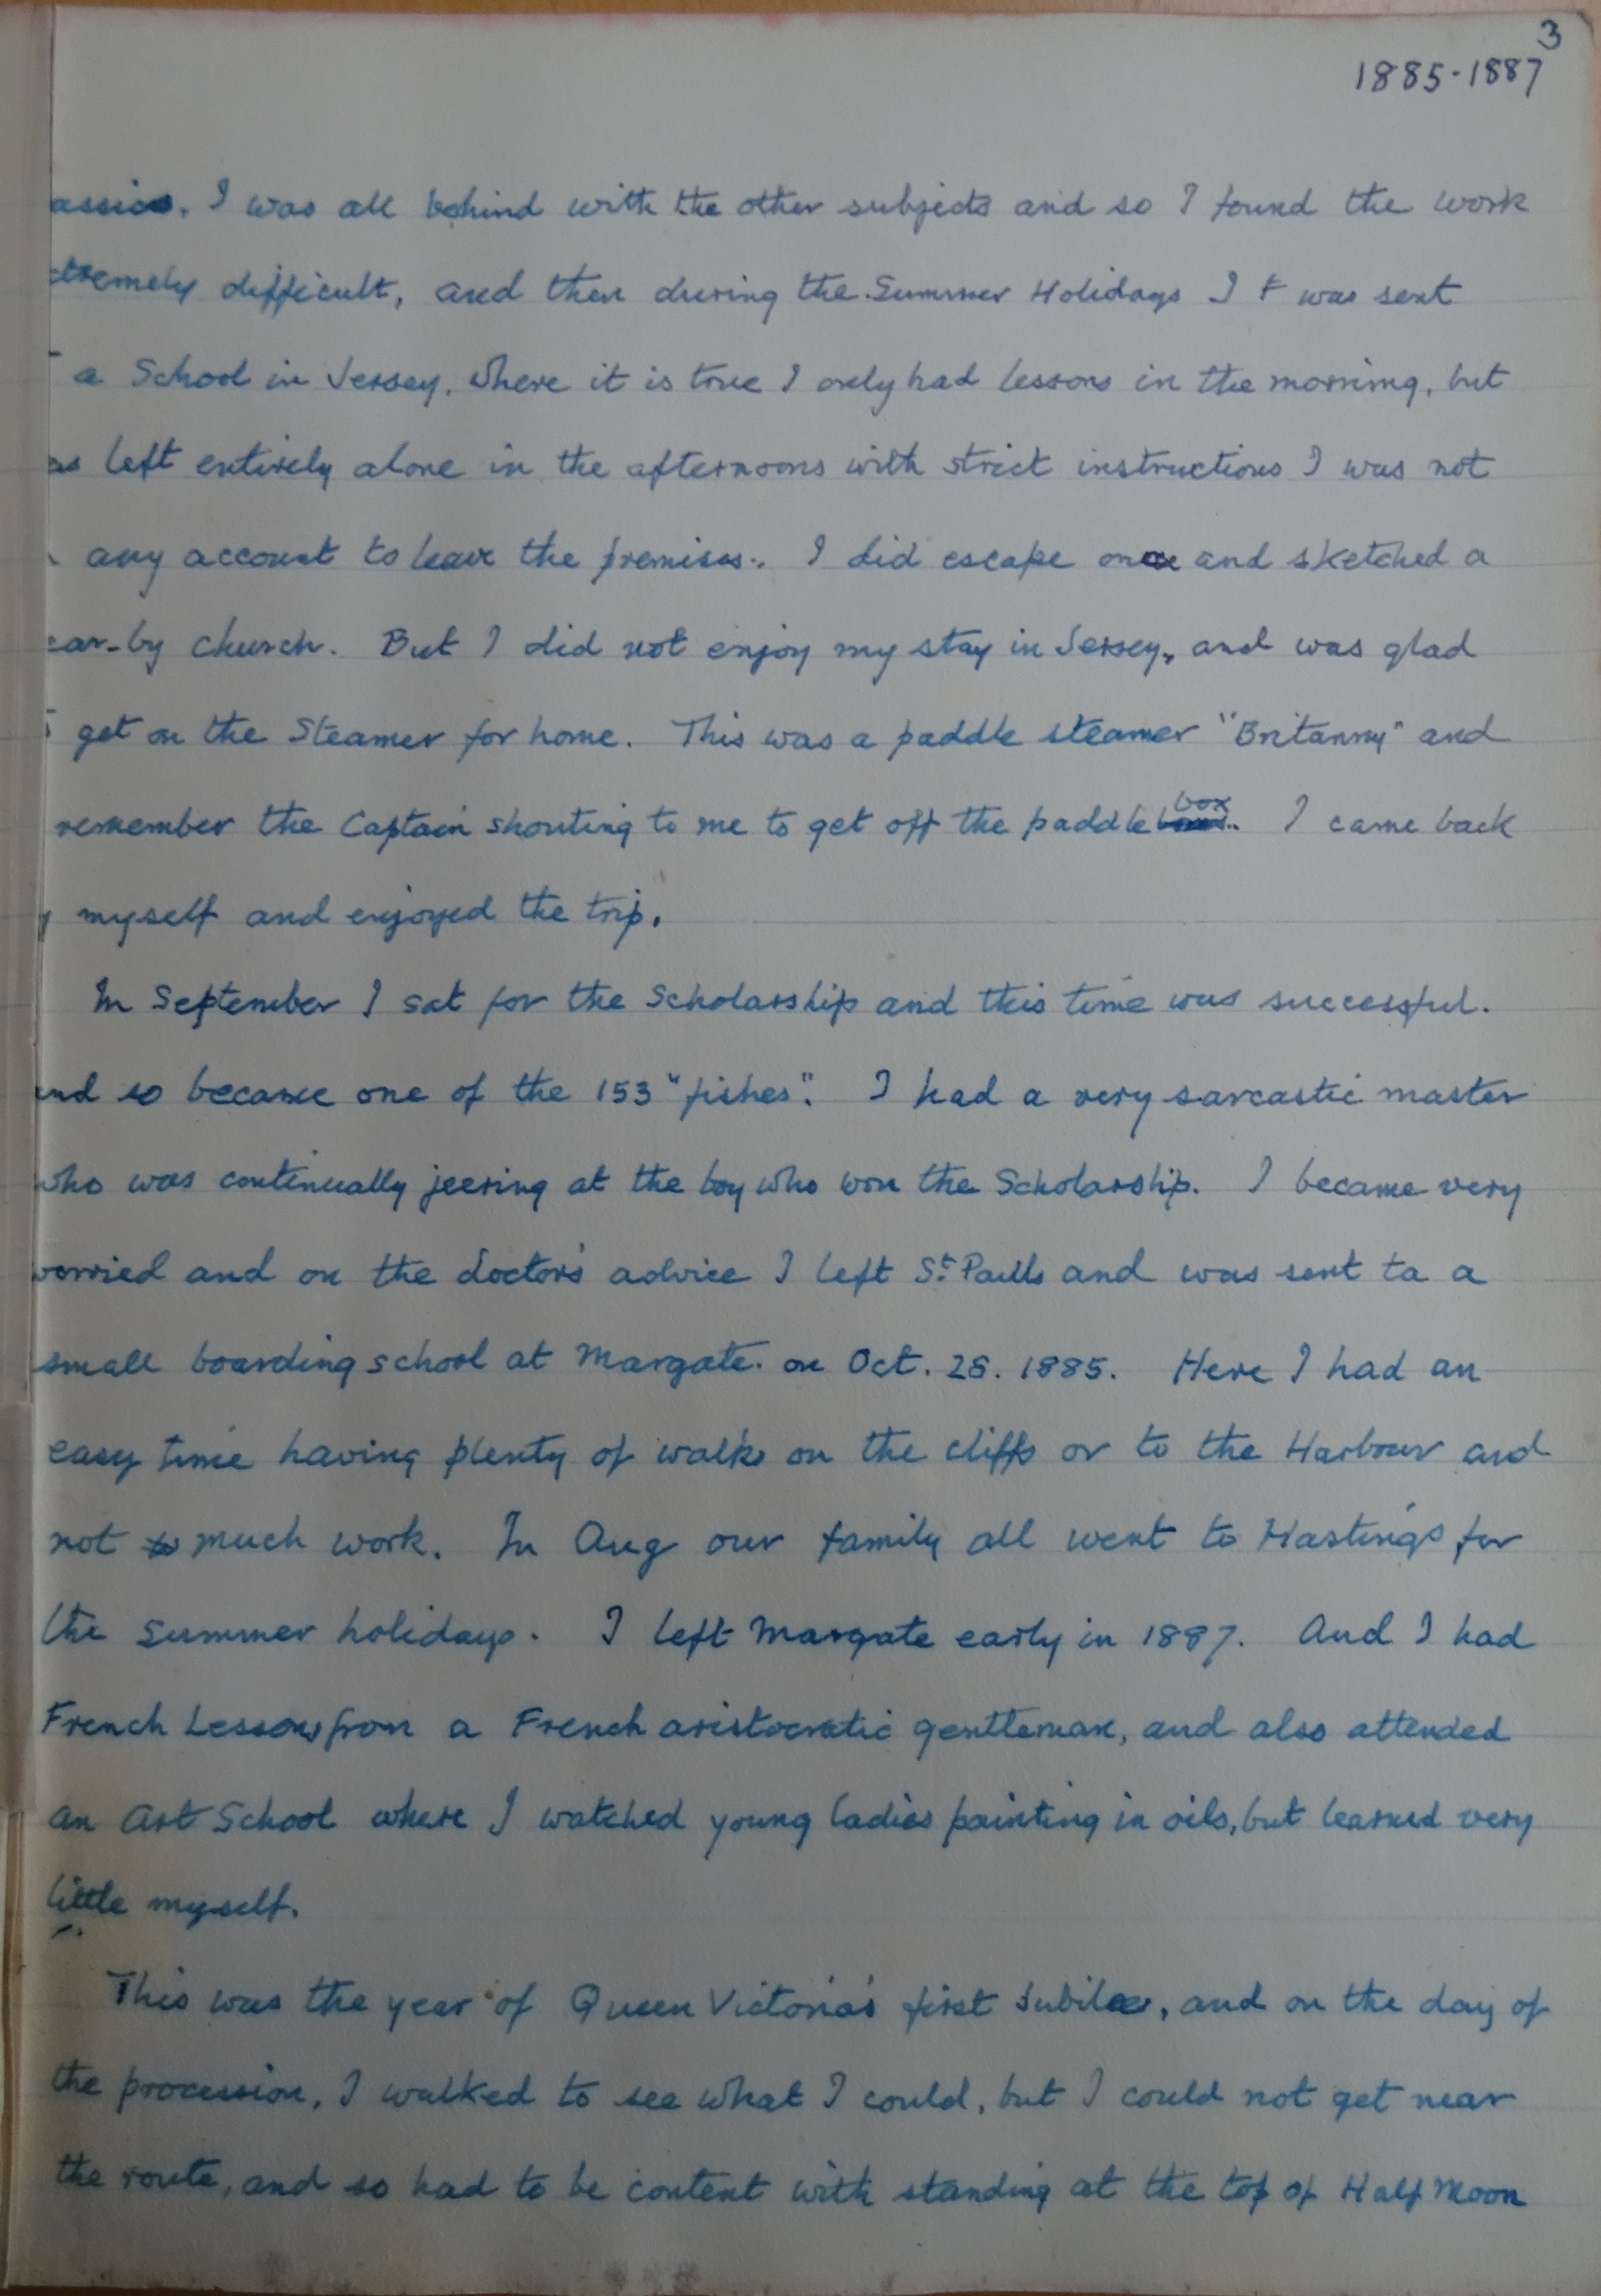 3
1885-1887
assics. I was all behind with the other subjects and so I found the work
xtremely difficult, and then during the Summer Holidays I was sent
a School in Jersey. Where it is true I only had lessons in the morning, but
as left entirely alone in the afternoons with strict instructions I was not
any account to leave the premises. I did escape once and sketched a
ear-by church. But I did not enjoy my stay in Jersey, and was glad
get on the Steamer for home. This was a paddle steamer "Britanny" and
remember the Captain shouting to me to get off the paddle box. I came back
y myself and enjoyed the trip.
In September I sat for the Scholarship and this time was successful.
and so became one of the 153 "fishes". I had a very sarcastic master
who was continually jeering at the boy who won the Scholarship. I became very
worried and on the doctor's advice I left St. Pauls and was sent to a
small boarding school at Margate. on Oct. 28. 1885. Here I had an
easy time having plenty of walks on the cliffs or to the Harbour and
not much work. In Aug our family all went to Hastings for
the Summer holidays. I left Margate early in 1887. And I had
French Lessons from a French aristocratic gentleman, and also attended
an Art School where I watched young ladies painting in oils, but learned very
little myself.
This was the year of Queen Victoria's first Jubilee, and on the day of
the procession, I walked to see what I could, but I could not get near
the route, and so had to be content with standing at the top of Half Moon